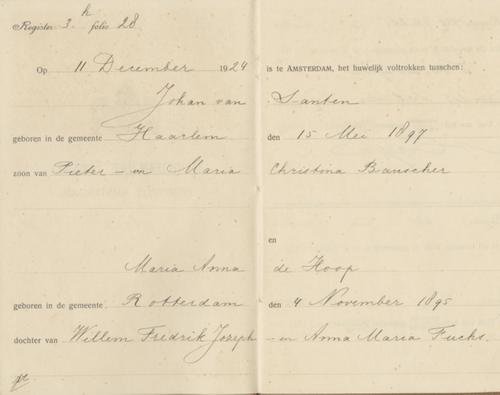 Register 3.h folio 28
Op 11 December 1924 is te AMSTERDAM, het huwelijk voltrokken tusschen:
Johan van Santen
geboren in de gemeente Haarlem den 15 Mei 1897
zoon van Pieter - en Maria Christina Bauscher
en
Maria Anna de Hoop
geboren in de gemeente Rotterdam den 4 November 1895
dochter van Willem Fredrik Jozeph - en Anna Maria Fuchs.